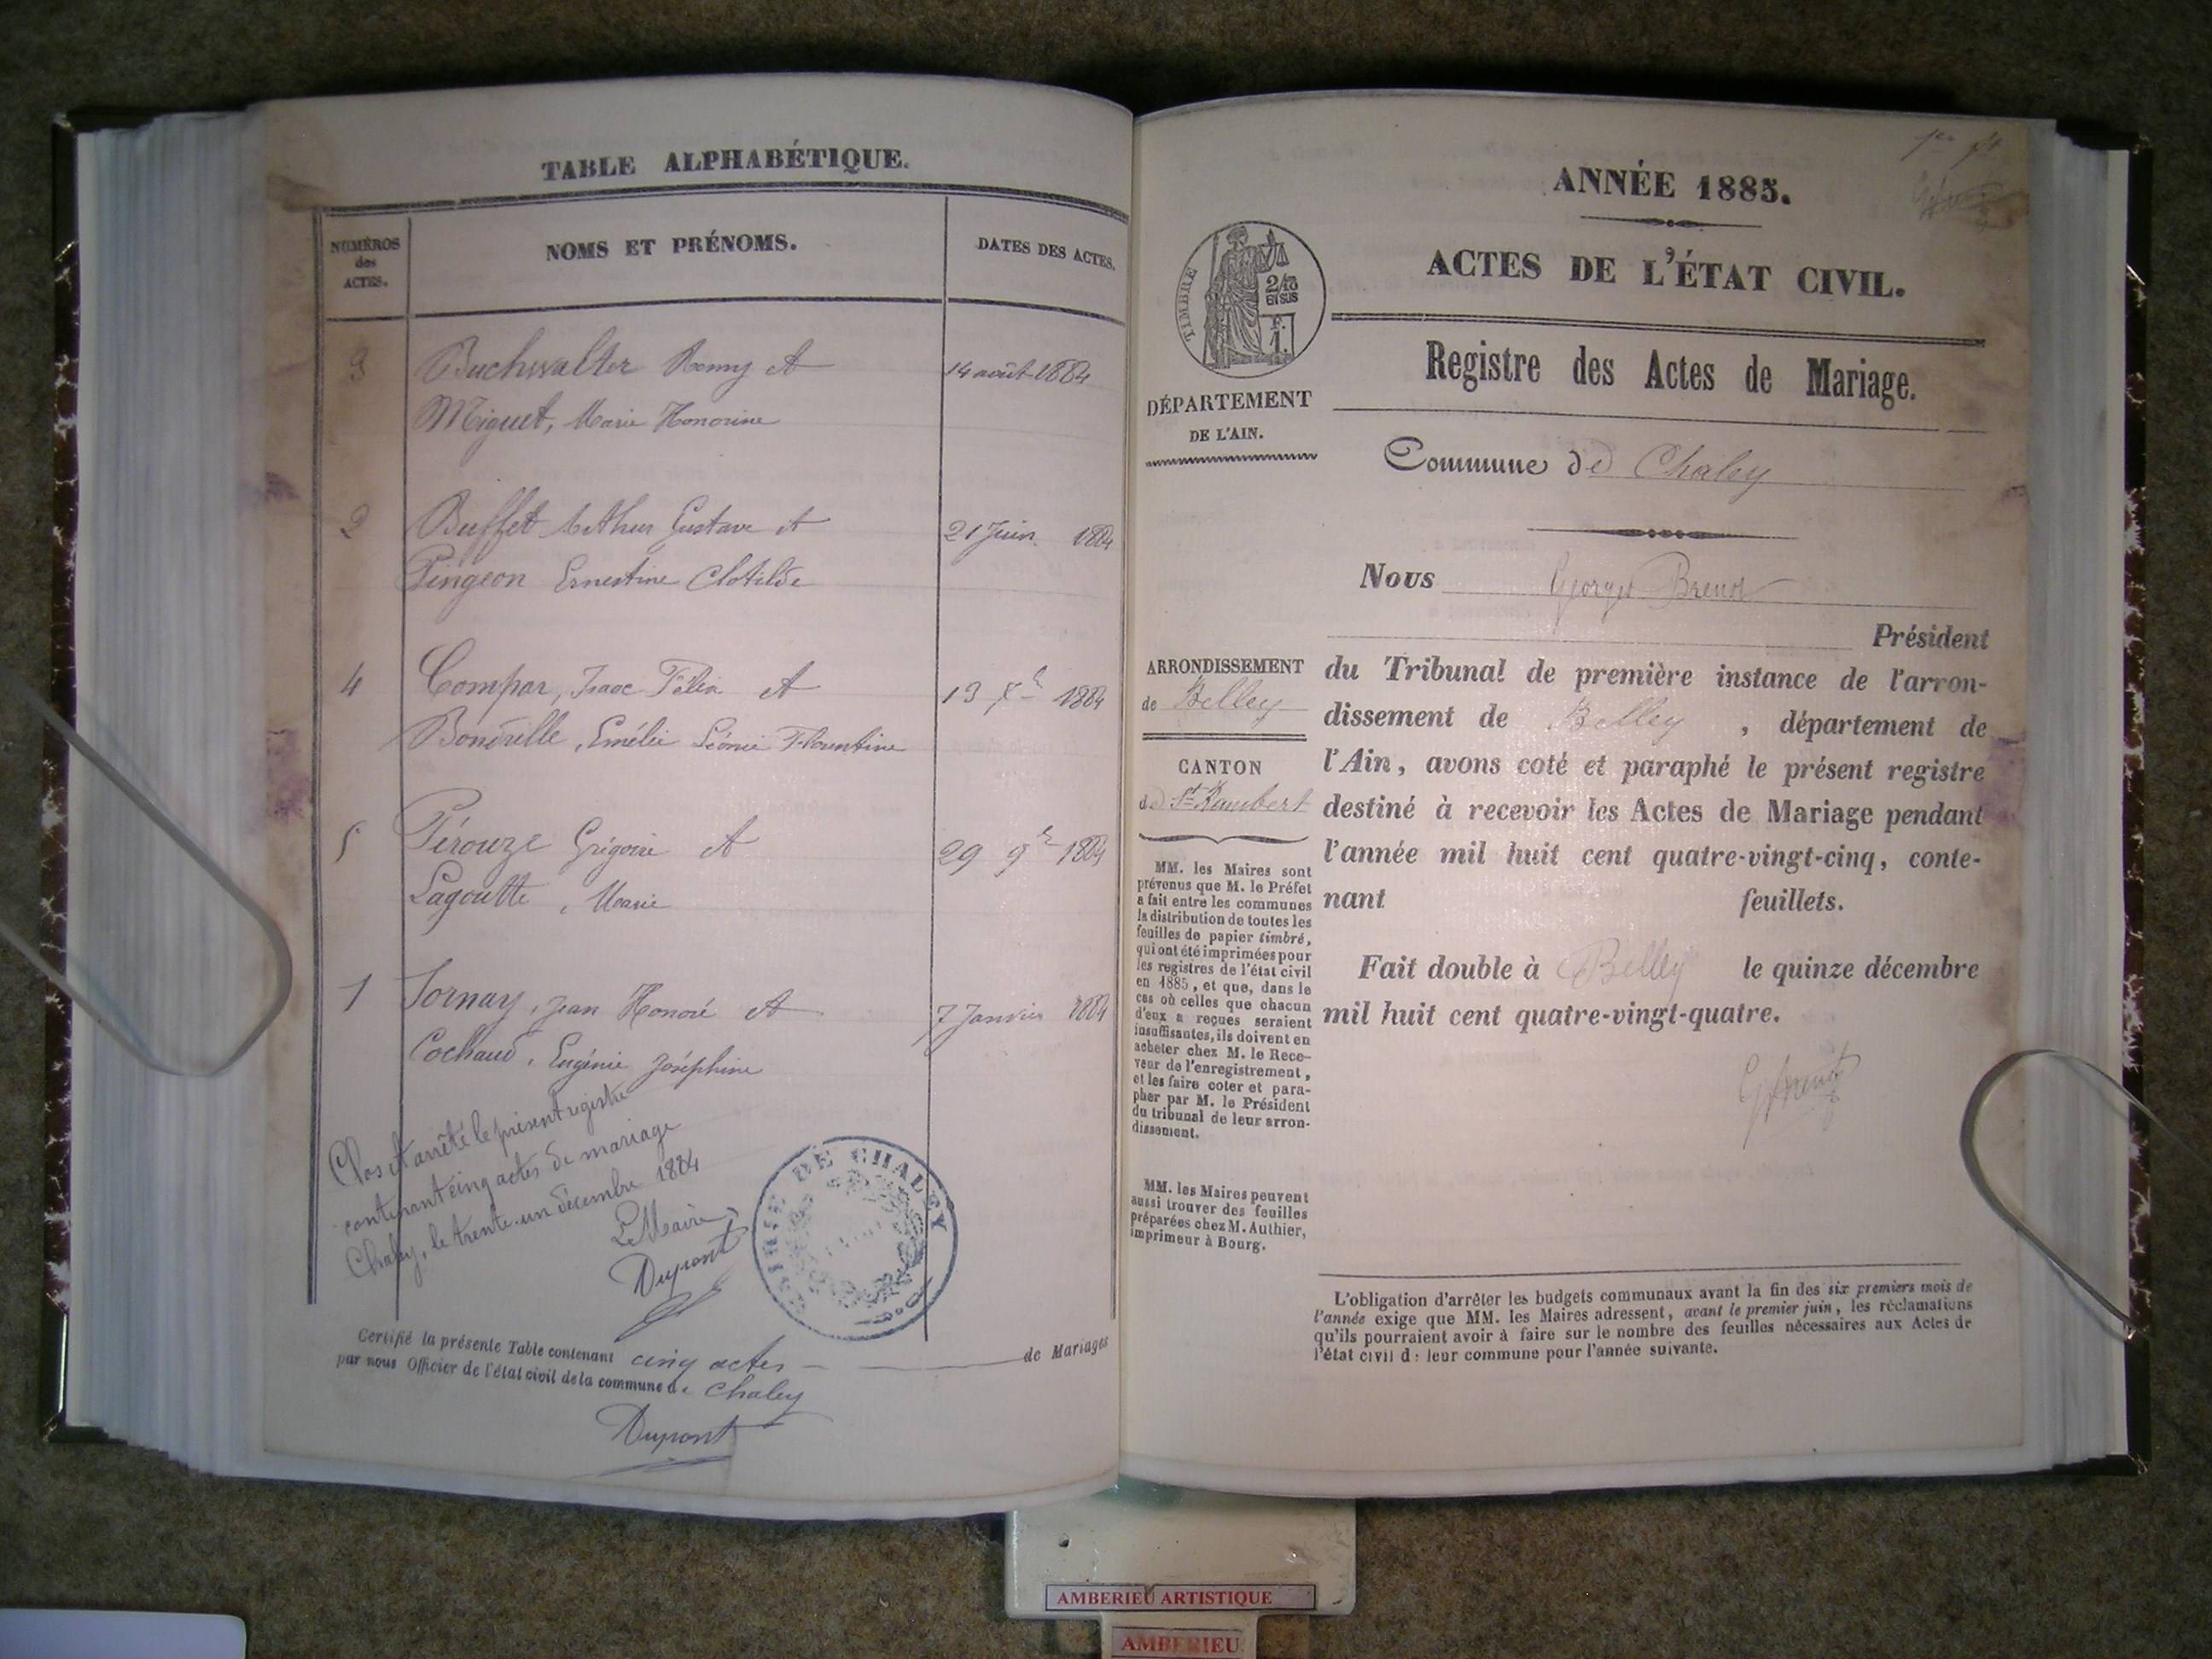 TABLE ALPHABÉTIQUE.
NUMÉROS
des
ACTES.
NOMS ET PRÉNOMS.
DATES DES ACTES.
3 Buchwalter Remy et 14 août 1884
Miguet, Marie Honorine
2 Buffet Arthur Gustave et 21 Juin 1884
Pingeon Ernestine Clotilde
4 Compar, Isaac Félix et 13 Xbre 1884
Bondrille, Emélie Léonie Florentine
5 Pérouze Grégoire et 29 9bre 1884
Lagoutte, Marie
1 Tornay, Jean Honoré et 7 Janvier 1884
Cochaud, Eugénie Joséphine
Clos et arrêté le présent registre
contenant cinq actes de mariage
Chaley, le trente-un décembre 1884
Le Maire
Dupont
MAIRIE DE CHALEY
Certifié la présente Table contenant cinq actes de Mariages
par nous Officier de l'état civil de la commune de Chaley
Dupont
ANNÉE 1885.
ACTES DE L'ÉTAT CIVIL.
TIMBRE
2/10
EN SUS
F.
1.
Registre des Actes de Mariage.
DÉPARTEMENT
DE L'AIN.
Commune de Chaley
Nous Georges
Président
du Tribunal de première instance de l'arron-
dissement de Belley, département de
l'Ain, avons coté et paraphé le présent registre
destiné à recevoir les Actes de Mariage pendant
l'année mil huit cent quatre-vingt-cinq, conte-
nant feuillets.
Fait double à Belley le quinze décembre
mil huit cent quatre-vingt-quatre.
ARRONDISSEMENT
de Belley
CANTON
de St Rambert
MM. les Maires sont
prévenus que M. le Préfet
a fait entre les communes
la distribution de toutes les
feuilles de papier timbré,
qui ont été imprimées pour
les registres de l'état civil
en 1885, et que, dans le
cas où celles que chacun
d'eux a reçues seraient
insuffisantes, ils doivent en
acheter chez M. le Rece-
veur de l'enregistrement,
et les faire coter et para-
pher par M. le Président
du tribunal de leur arron-
dissement.
MM. les Maires peuvent
aussi trouver des feuilles
préparées chez M. Authier,
imprimeur à Bourg.
L'obligation d'arrêter les budgets communaux avant la fin des six premiers mois de
l'année exige que MM. les Maires adressent, avant le premier juin, les réclamations
qu'ils pourraient avoir à faire sur le nombre des feuilles nécessaires aux Actes de
l'état civil de leur commune pour l'année suivante.
AMBERIEU ARTISTIQUE
AMBERIEU